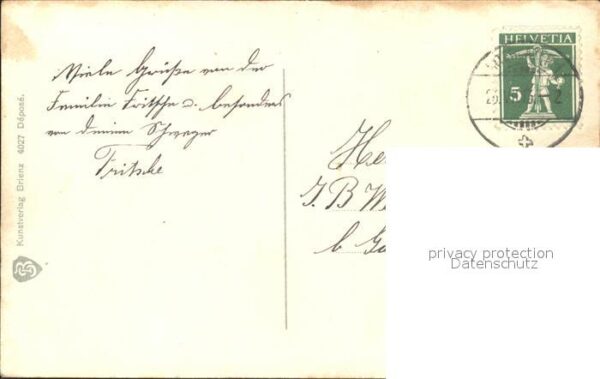 Viele Grüße von der
Familie Fritsche u. besonders
von deinem Schwager
Fritsche
Kunstverlag Brienz 4027 Déposé.
HELVETIA
5
J B W
b
privacy protection
Datenschutz